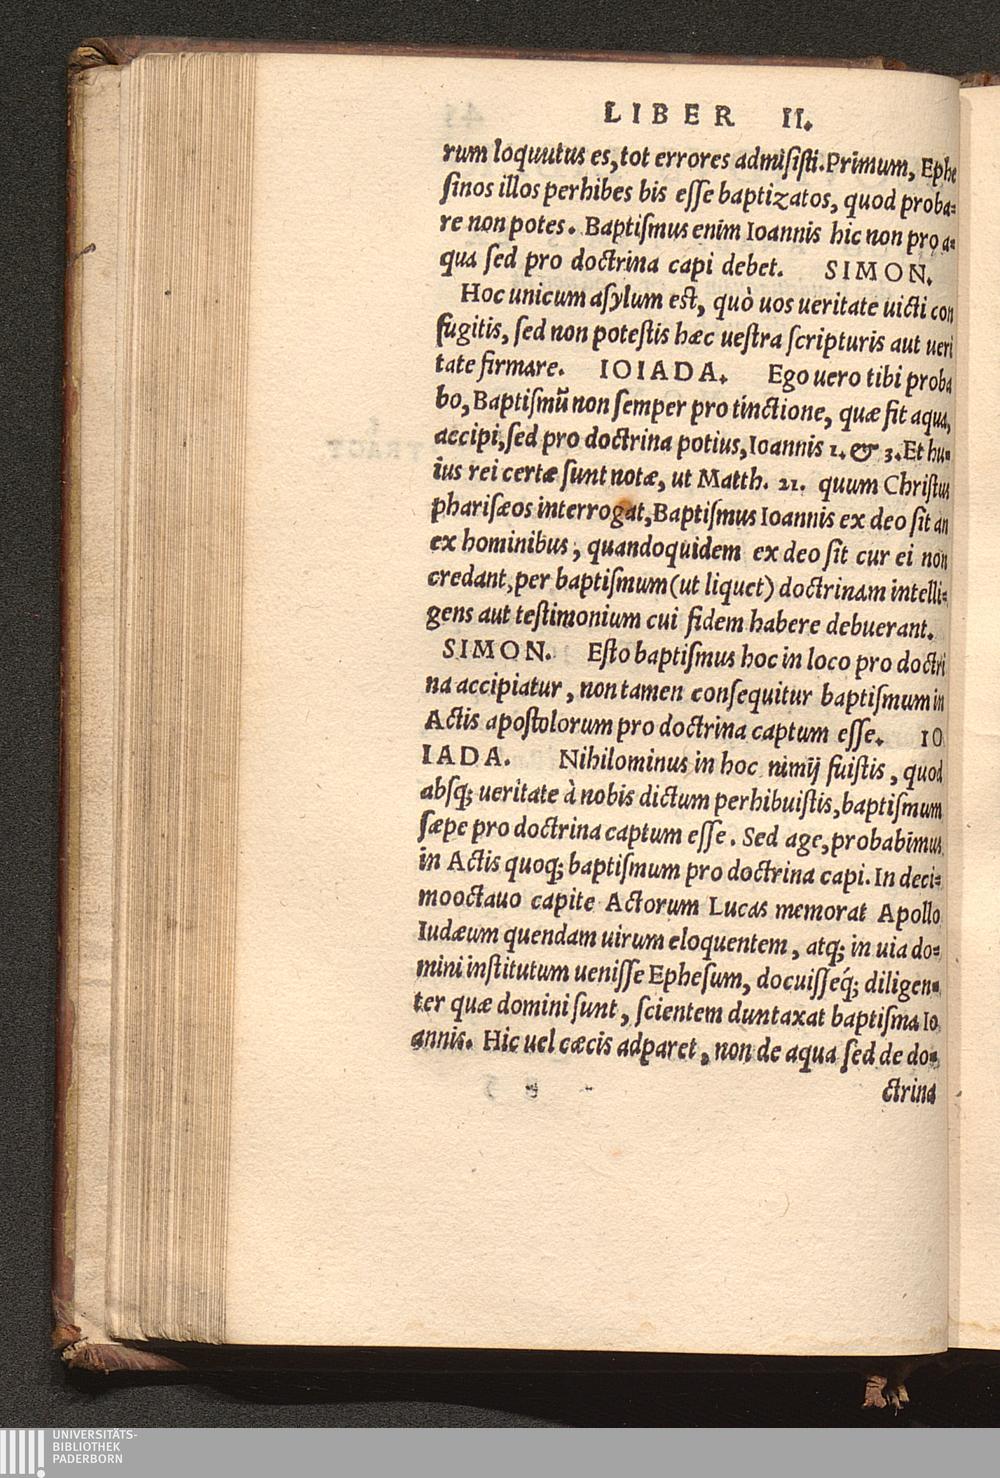 LIBER II.
rum loquutus es, tot errores admisisti. Primum, Ephe
sinos illos perhibes bis esse baptizatos, quod proba⸗
re non potes. Baptismus enim Ioannis hic non pro a⸗
qua sed pro doctrina capi debet. SIMON.
Hoc unicum asylum est, quò uos ueritate uicti con
fugitis, sed non potestis hæc uestra scripturis aut ueri
tate firmare. IOIADA. Ego uero tibi proba
bo, Baptismũ non semper pro tinctione, quæ fit aqua,
accipi, sed pro doctrina potius, Ioannis 1. & 3. Et hu⸗
ius rei certæ sunt notæ, ut Matth. 21. quum Christus
pharisæos interrogat, Baptismus Ioannis ex deo sit an
ex hominibus, quandoquidem ex deo sit cur ei non
credant, per baptismum (ut liquet) doctrinam intelli⸗
gens aut testimonium cui fidem habere debuerant.
SIMON. Esto baptismus hoc in loco pro doctri
na accipiatur, non tamen consequitur baptismum in
Actis apostolorum pro doctrina captum esse. IO
IADA. Nihilominus in hoc nimij fuistis, quod
absq; ueritate à nobis dictum perhibuistis, baptismum
sæpe pro doctrina captum esse. Sed age, probabimus
in Actis quoq; baptismum pro doctrina capi. In deci⸗
mooctauo capite Actorum Lucas memorat Apollo
Iudæum quendam uirum eloquentem, atq; in uia do⸗
mini institutum uenisse Ephesum, docuisséq; diligen⸗
ter quæ domini sunt, scientem duntaxat baptisma Io
annis. Hic uel cæcis adparet, non de aqua sed de do⸗
ctrina
UNIVERSITÄTS-
BIBLIOTHEK
PADERBORN